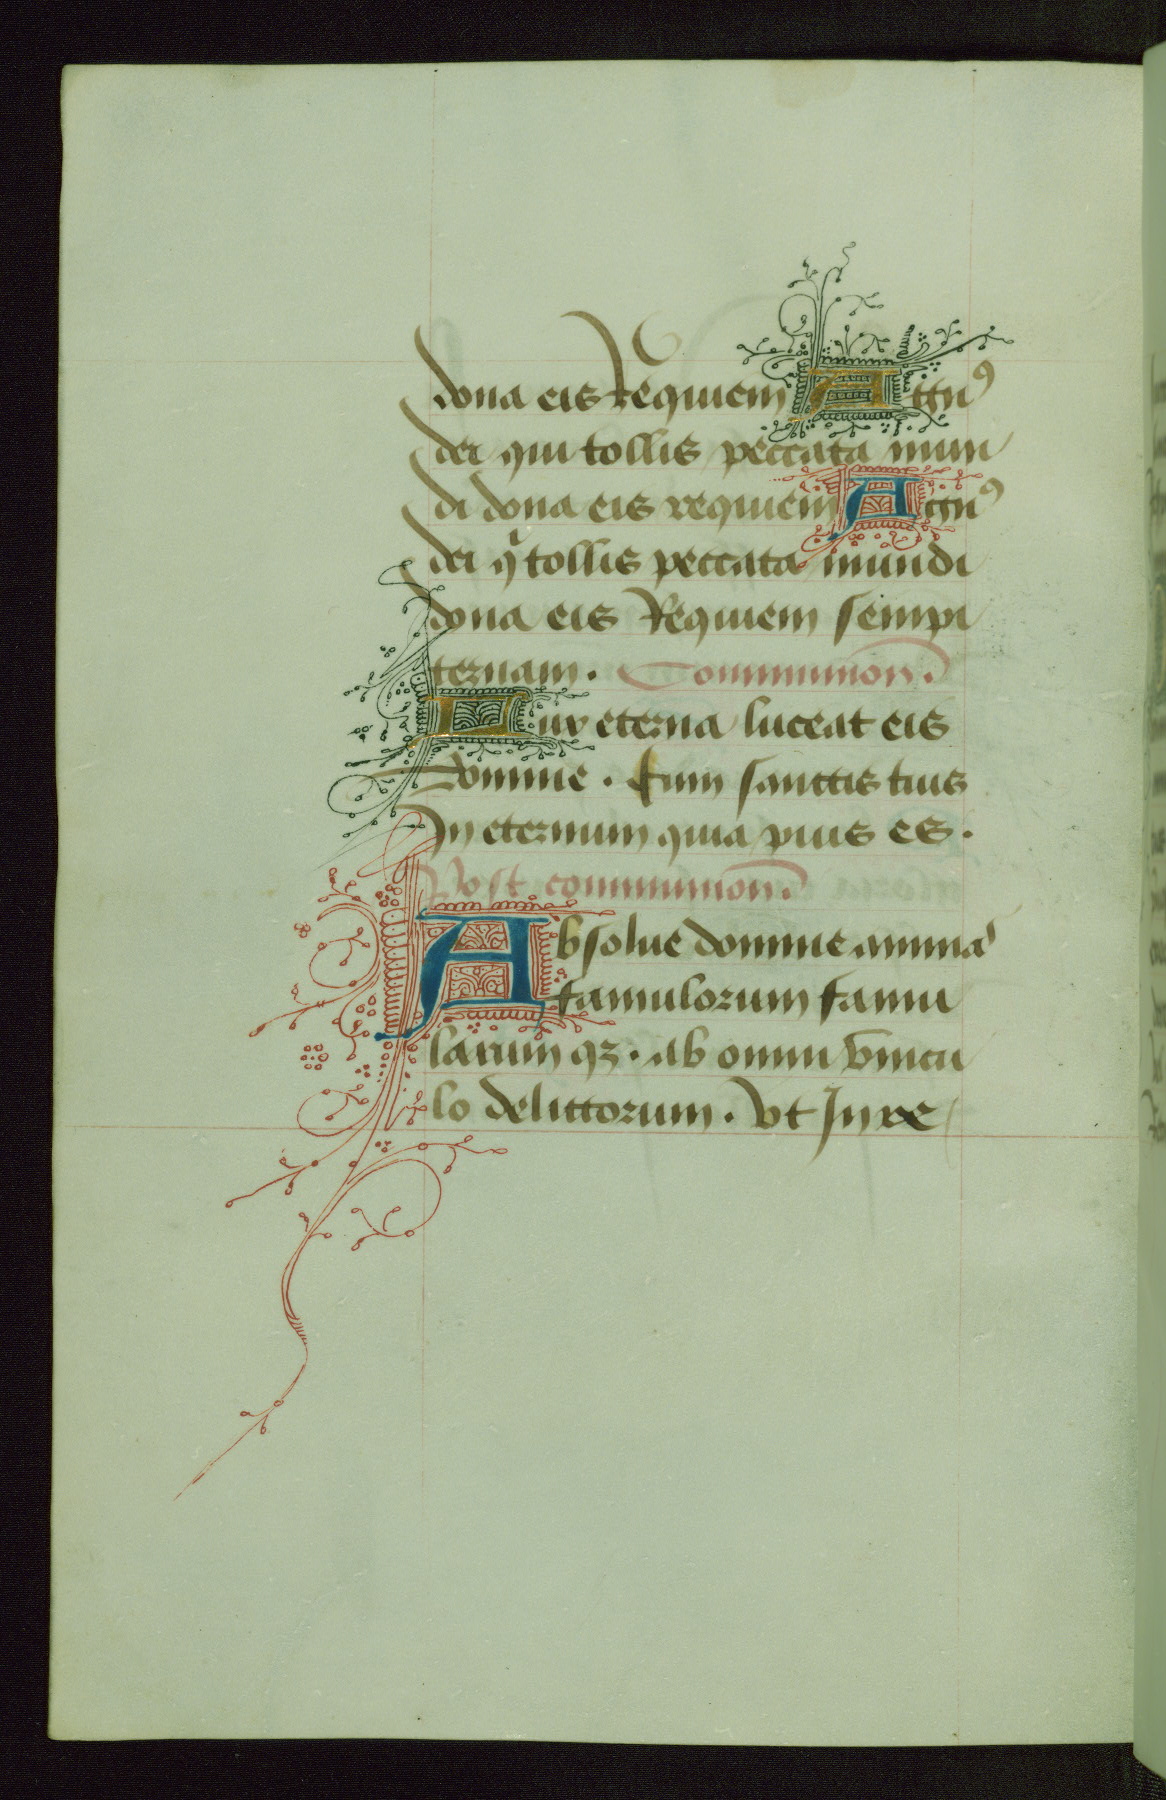 dona eis Requiem Agnꝰ
dei qui tollis peccata mun
di dona eis requiem Agnꝰ
dei qͥ tollis peccata mundi
dona eis Requiem sempi
ternam. Communion.
Lux eterna luceat eis
domine. Cum sanctis tuis
In eternum quia pius es.
Post communion.
Absolue domine animas
famulorum famu
larum qꝫ. ab omni vincu
lo delictorum. Vt In re